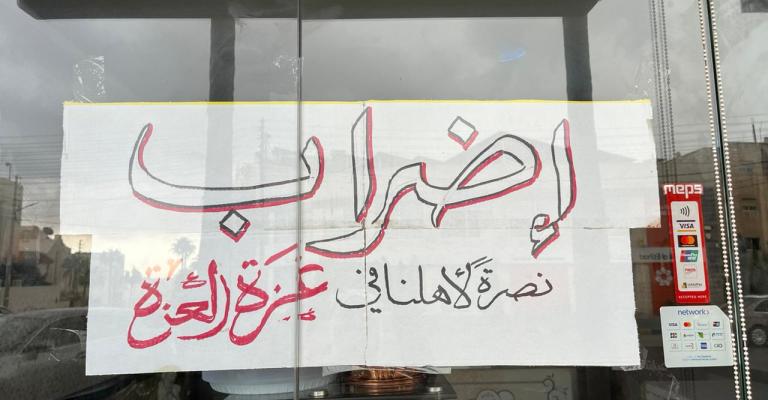 إضراب
نصرةً لأهلنا في غزة العزة
meps
VISA
ACCEPTED HERE
network
VISA